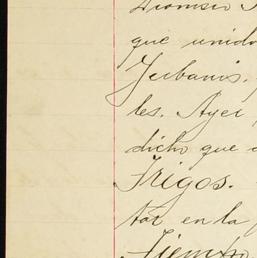 Dionisio
que unido
Yerbanis.
les. Ayer
dicho que
Trigos.
tar en la
Tiempo